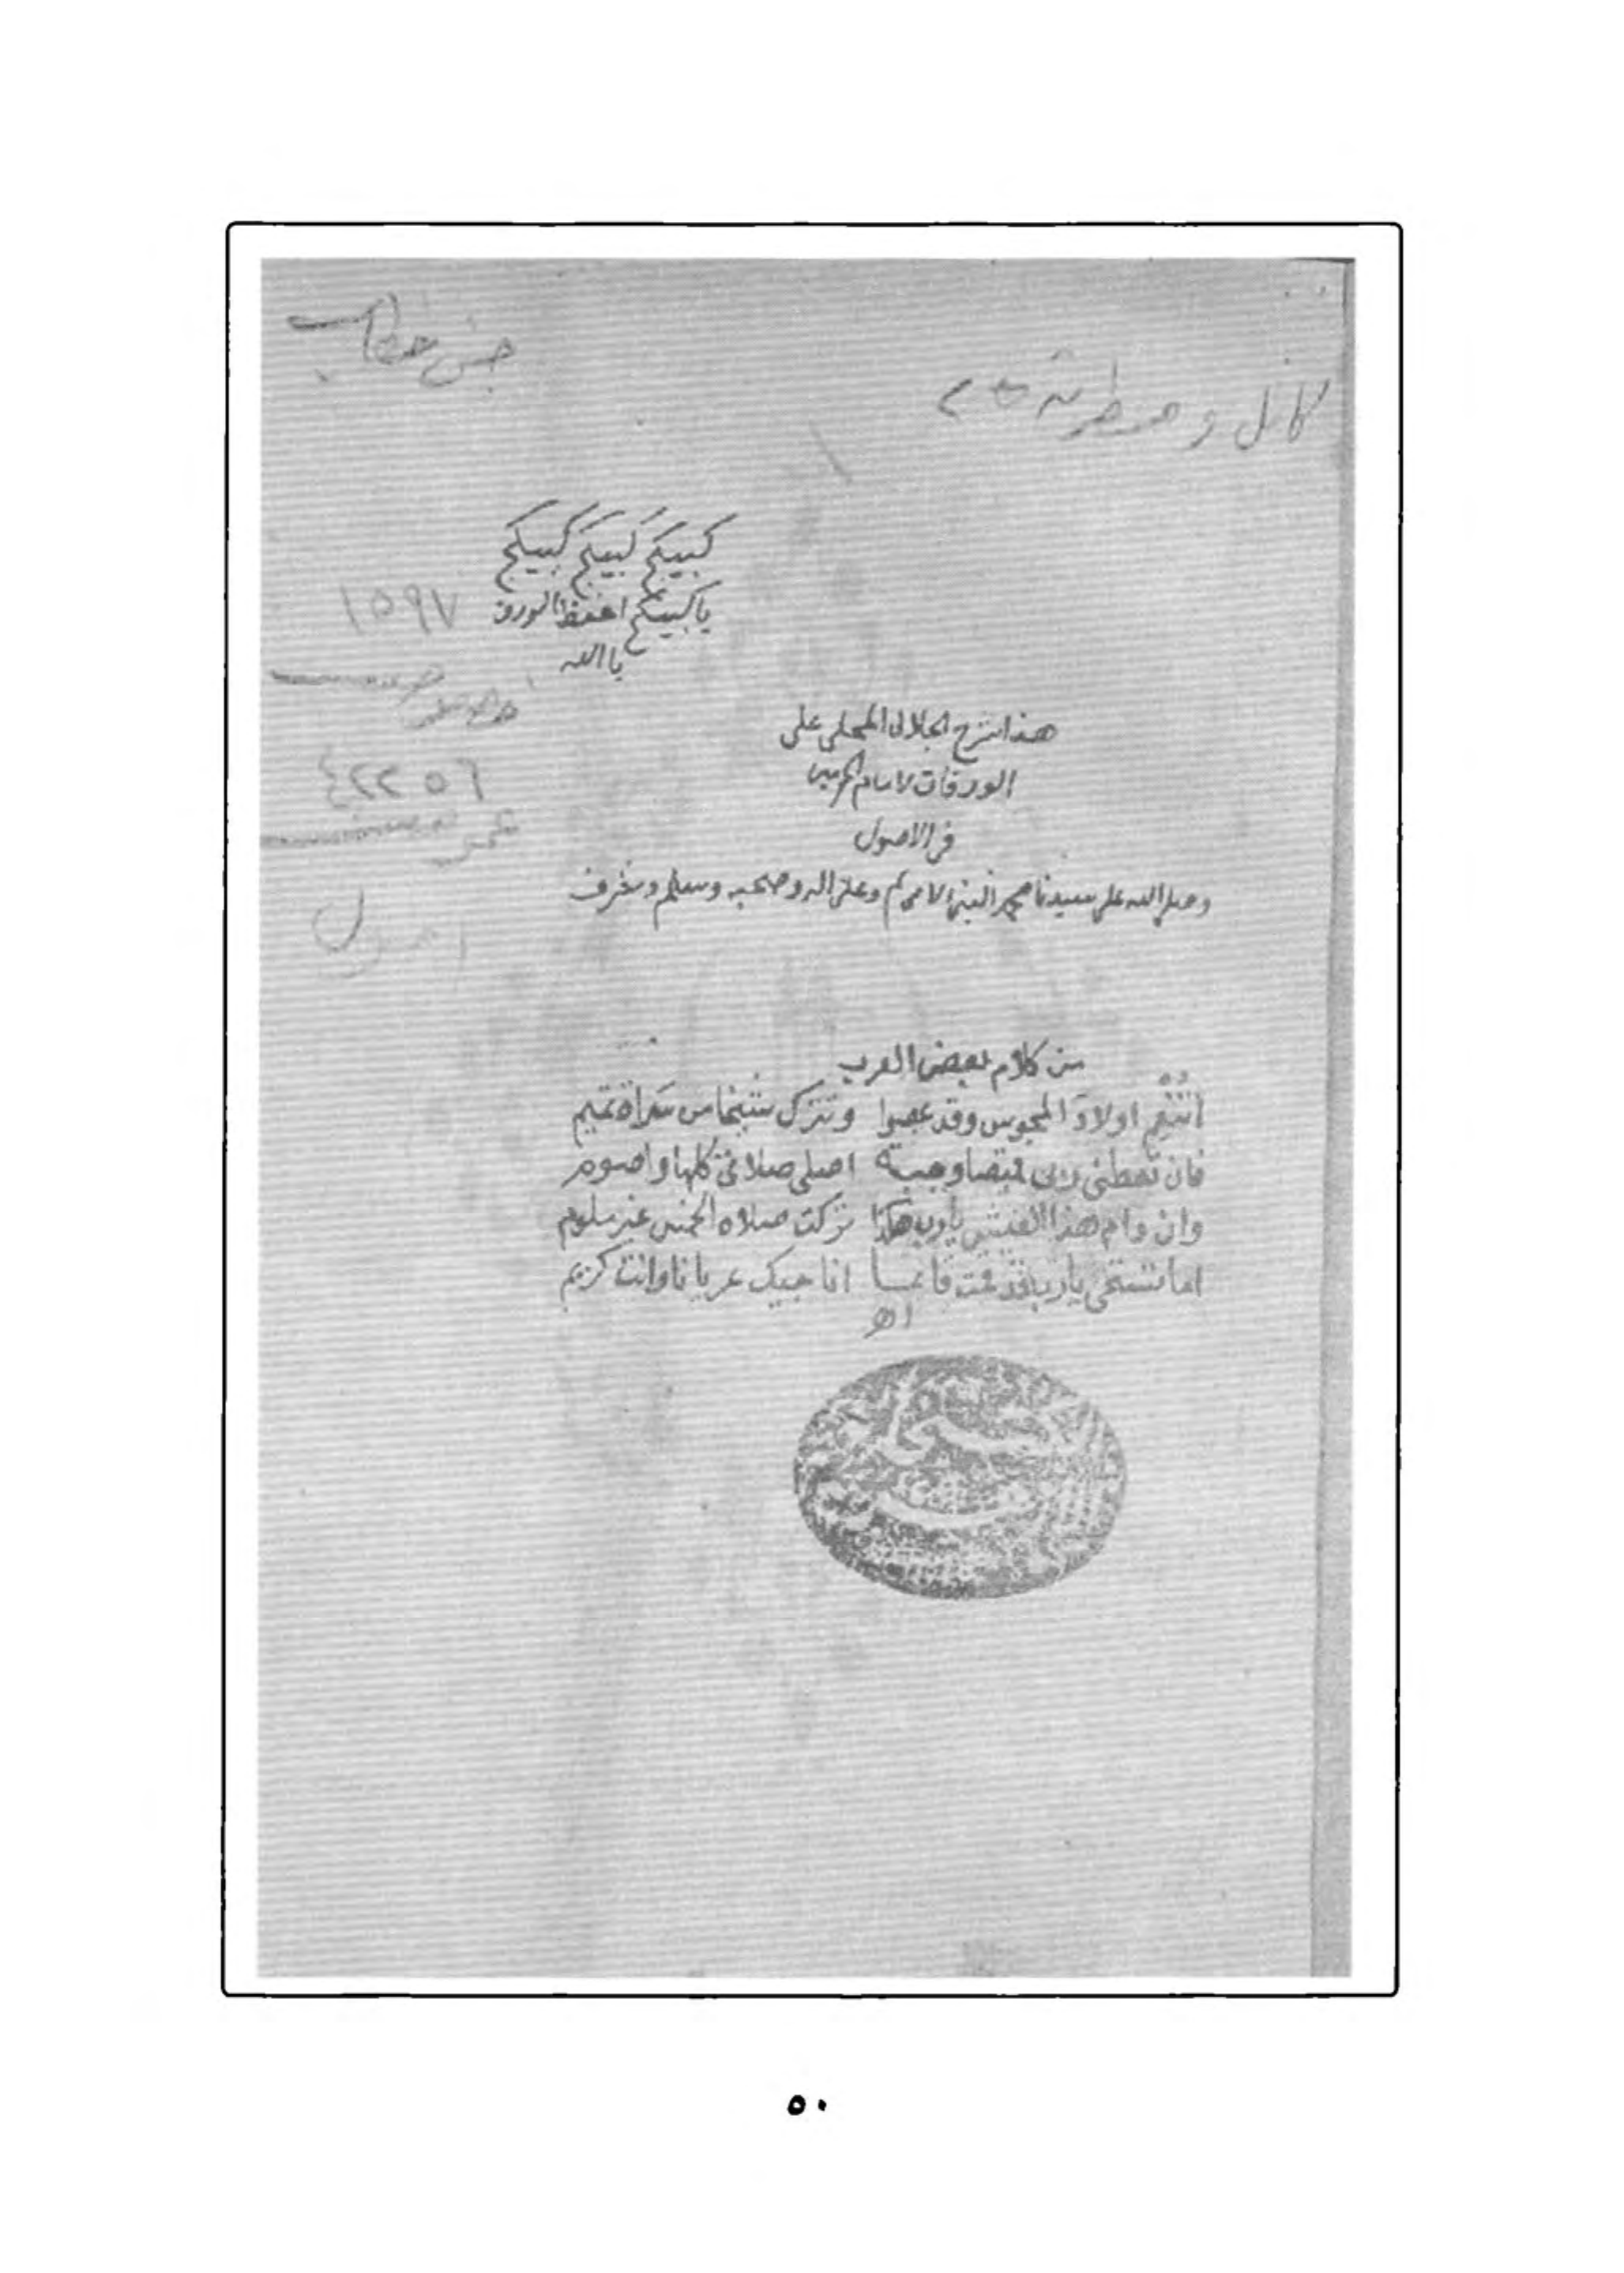 كامل و
كبيكج كبيكج كبيكج
يا كبيكج احفظ الورق
يا الله
١٥٩٧
٤٢٢٥٦
هذا شرح الجلال المحلي على
الورقات لامام الحرمين
في الاصول
وصلى الله على سيدنا محمد النبي الامي وعلى اله وصحبه وسلم وشرف
اصول
من كلام بعض العرب
اولاد المجوس وقد عصوا وتترك شيخا من سراة تميم
فان تعطني ربي قميصا وجبة اصلي صلاتي كلها واصوم
وان دام هذا العيش يا رب هكذا تركت صلاة الخمس غير ملوم
اما تستحي يا رب قد قمت قائما اناجيك عريانا وانت كريم
اهـ
٥٠